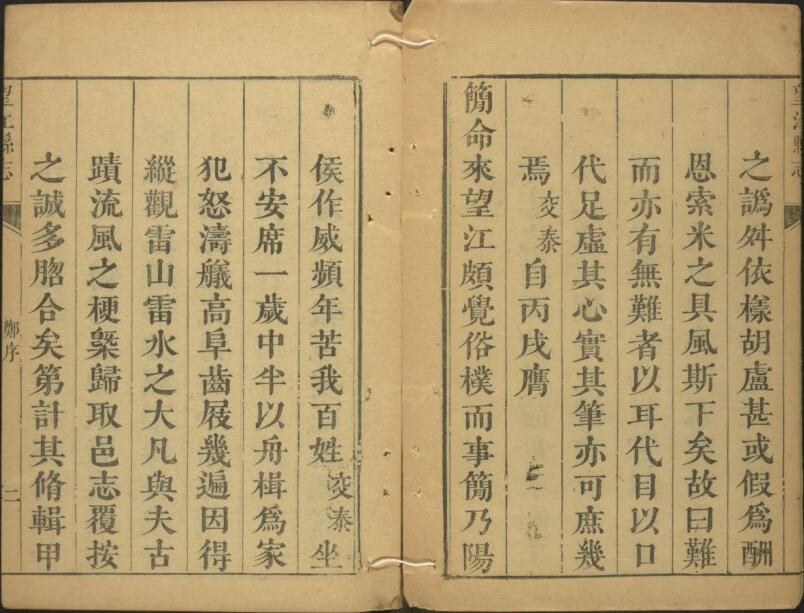 望江縣志
之譌舛依樣胡盧甚或假爲酬
恩索米之具風斯下矣故曰難
而亦有無難者以耳代目以口
代足虛其心實其筆亦可庶幾
焉交泰自丙戌膺
簡命來望江頗覺俗樸而事簡乃陽
侯作威頻年苦我百姓交泰坐
不安席一歲中半以舟楫爲家
犯怒濤艤高阜齒屐幾遍因得
縱觀雷山雷水之大凡與夫古
蹟流風之梗槩歸取邑志覆按
之誠多脗合矣第計其脩輯甲
望江縣志 鄭序 二